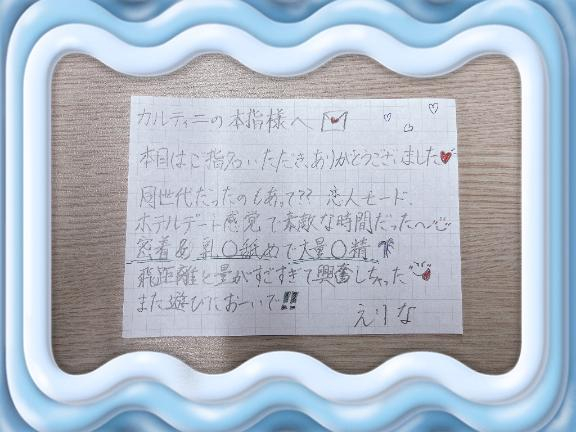 カルティニの本指様へ
本日はご指名いただき、ありがとうございました
同世代だったのもあって?? 恋人モード、
ホテルデート感覚で素敵な時間だったへ
密着&乳〇舐めで大量〇精
飛距離と量がすごすぎて興奮しちゃった
また遊びにおーいで!!
えりな